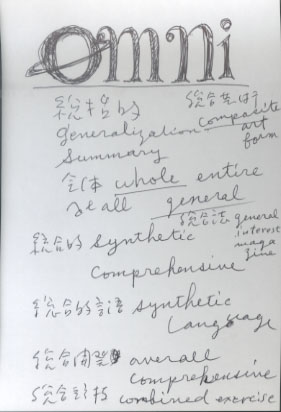 omni
総括的 総合芸術
generalization composite art form
summary
全体 whole entire
all general
総合誌 general interest magazine
統合的 synthetic
comprehensive
総合的言語 synthetic
Language
総合開発 overall
comprehensive
総合競技 combined exercise